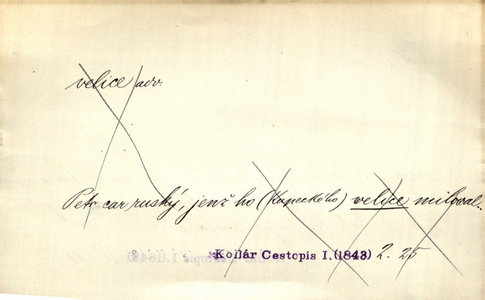 velice adv.
Petr car ruský, jenž ho (Kupeckého) velice miloval.
Kollár Cestopis I. (1843) 2. 25